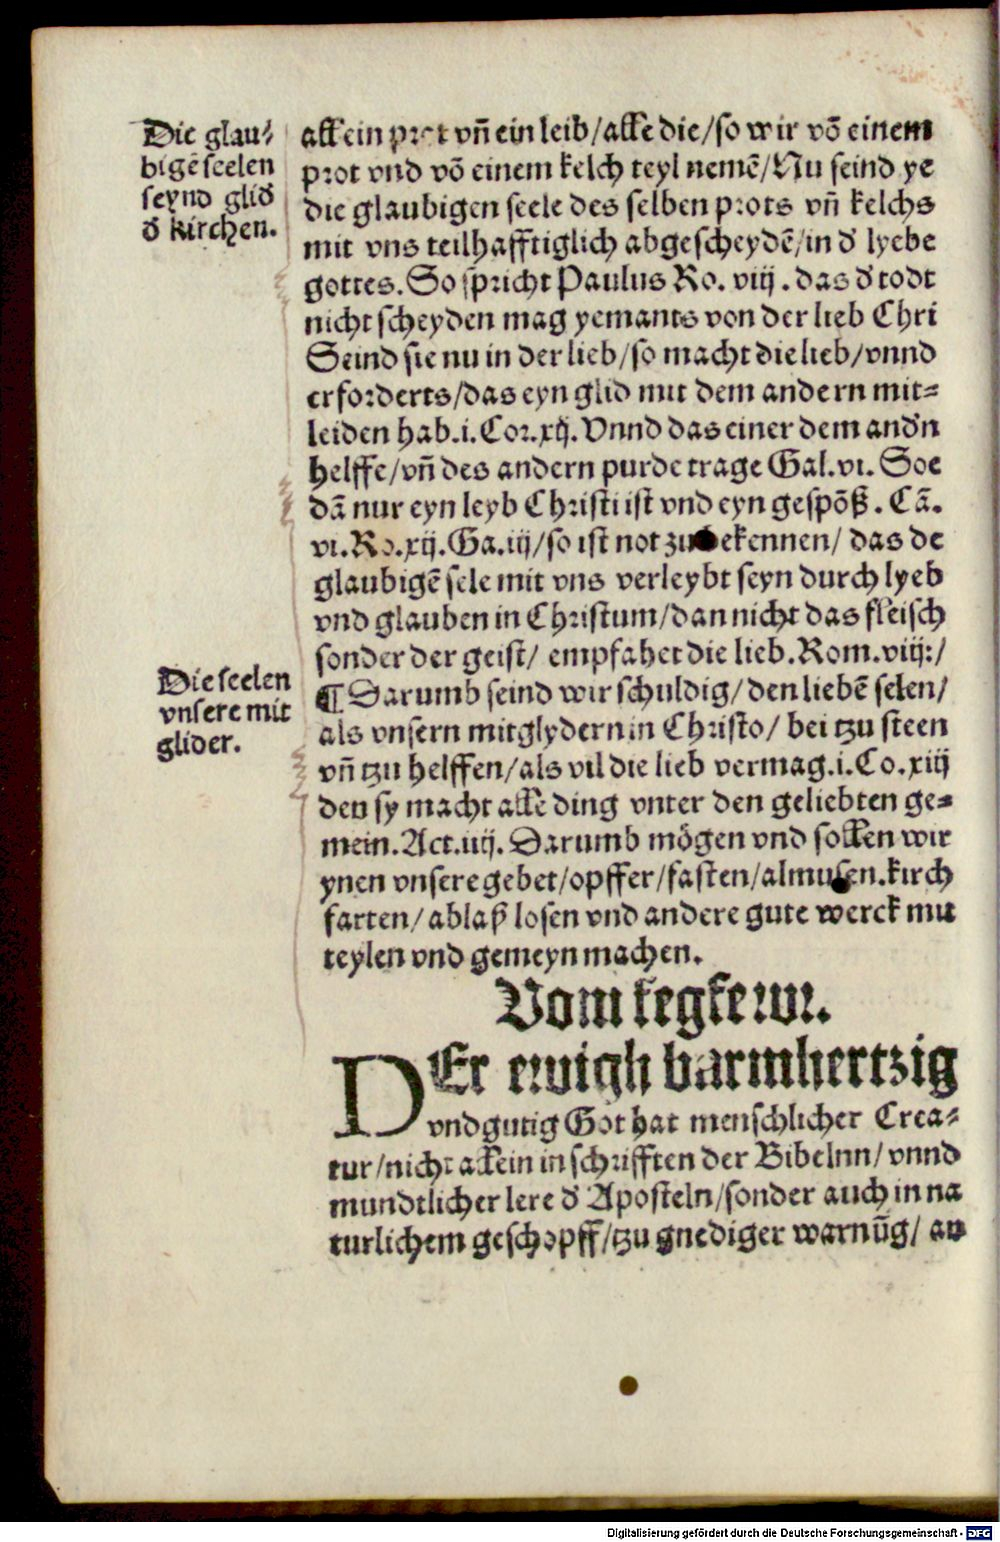 Die glau-
bigẽ seelen
seynd glið
ð kirchen.
all ein prot vñ ein leib/alle die/so wir võ einem
prot vnd võ einem kelch teyl nemẽ/Nu seind ye
die glaubigen seele des selben prots vñ kelchs
mit vns teilhafftiglich abgescheydẽ/in ð lyebe
gottes. So spricht Paulus Ro. viij. das ð todt
nicht scheyden mag yemants von der lieb Chri
Seind sie nu in der lieb/so macht die lieb/vnnd
erforderts/das eyn glid mit dem andern mit-
leiden hab.i.Cor.xij. Vnnd das einer dem anðn
helffe/vñ des andern purde trage Gal.vi. So e
dã nur eyn leyb Christi ist vnd eyn gespõß. Cã.
vi.Ro.xij.Ga.iij/so ist not zu bekennen/ das de
glaubigẽ sele mit vns verleybt seyn durch lyeb
vnd glauben in Christum/dan nicht das fleisch
sonder der geist/ empfahet die lieb.Rom.viij:/
Die seelen
vnsere mit
glider.
¶ Darumb seind wir schuldig/den liebẽ selen/
als vnsern mitglydern in Christo/ bei tzu steen
vñ tzu helffen/als vil die lieb vermag.i.Co.xiij
den sy macht alle ding vnter den geliebten ge-
mein.Act.iiij. Darumb mögen vnd sollen wir
ynen vnsere gebet/opffer/fasten/almusen.kirch
farten/ablaß losen vnd andere gute werck mit
teylen vnd gemeyn machen.
Vom fegfewr.
DEr ewigh barmhertzig
vnd gutig Got hat menschlicher Crea-
tur/nicht allein in schrifften der Bibelnn/vnnd
mundtlicher lere ð Aposteln/sonder auch in na
turlichem geschopff/tzu gnediger warnũg/ an
Digitalisierung gefördert durch die Deutsche Forschungsgemeinschaft - DFG